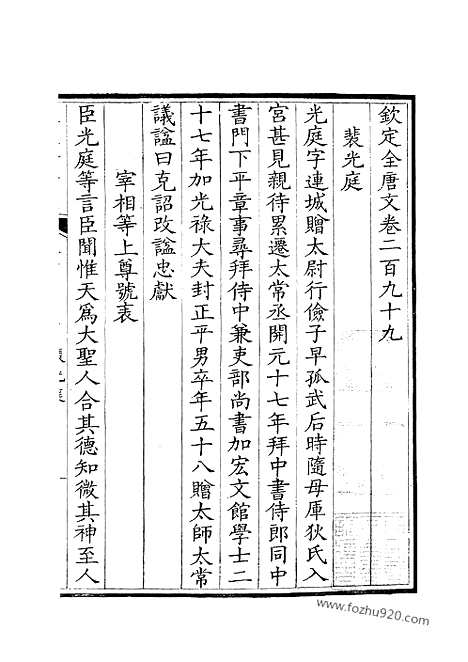 欽定全唐文卷二百九十九
裴光庭
光庭字連城贈太尉行儉子早孤武后時隨母厙狄氏入
宮甚見親待累遷太常丞開元十七年拜中書侍郎同中
書門下平章事尋拜侍中兼吏部尚書加宏文館學士二
十七年加光祿大夫封正平男卒年五十八贈太師太常
議諡曰克詔改諡忠獻
宰相等上尊號表
臣光庭等言臣聞惟天爲大聖人合其德知微其神至人
www.fozhu920.com